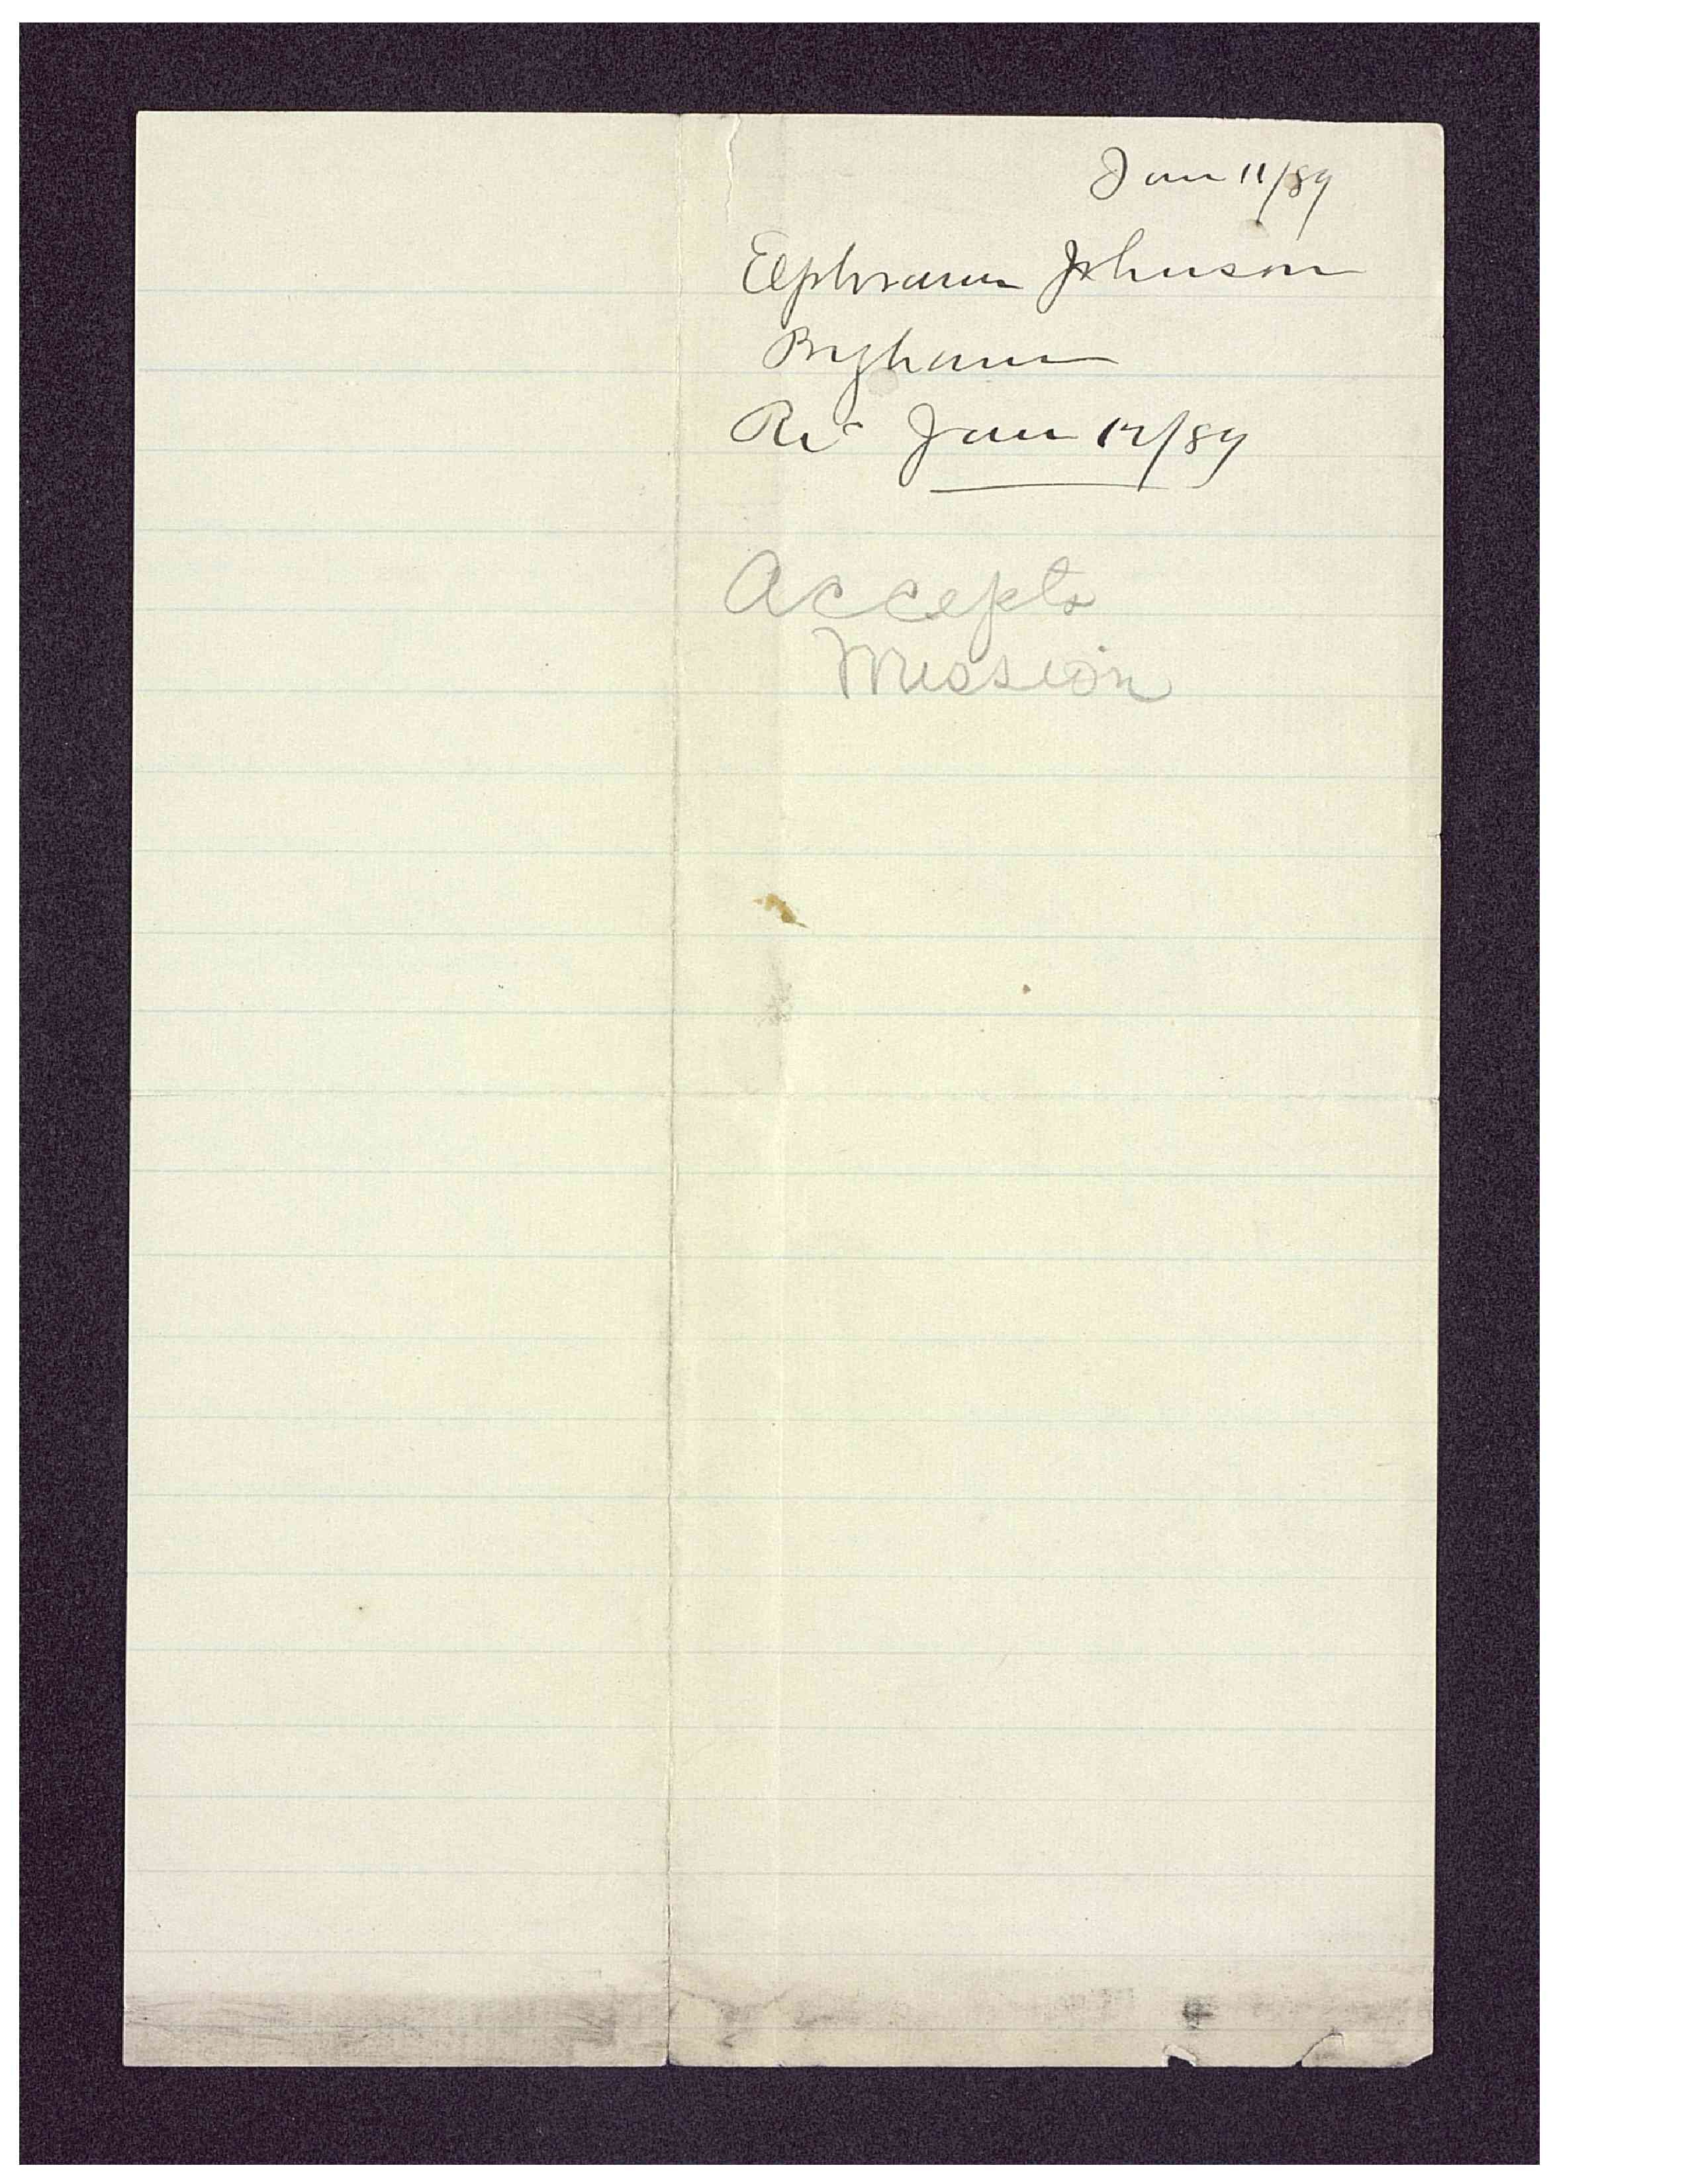 Jan 11/89
Elphraum Johnson
Brigham
Rec Jan 12/89
Accepts
Mission